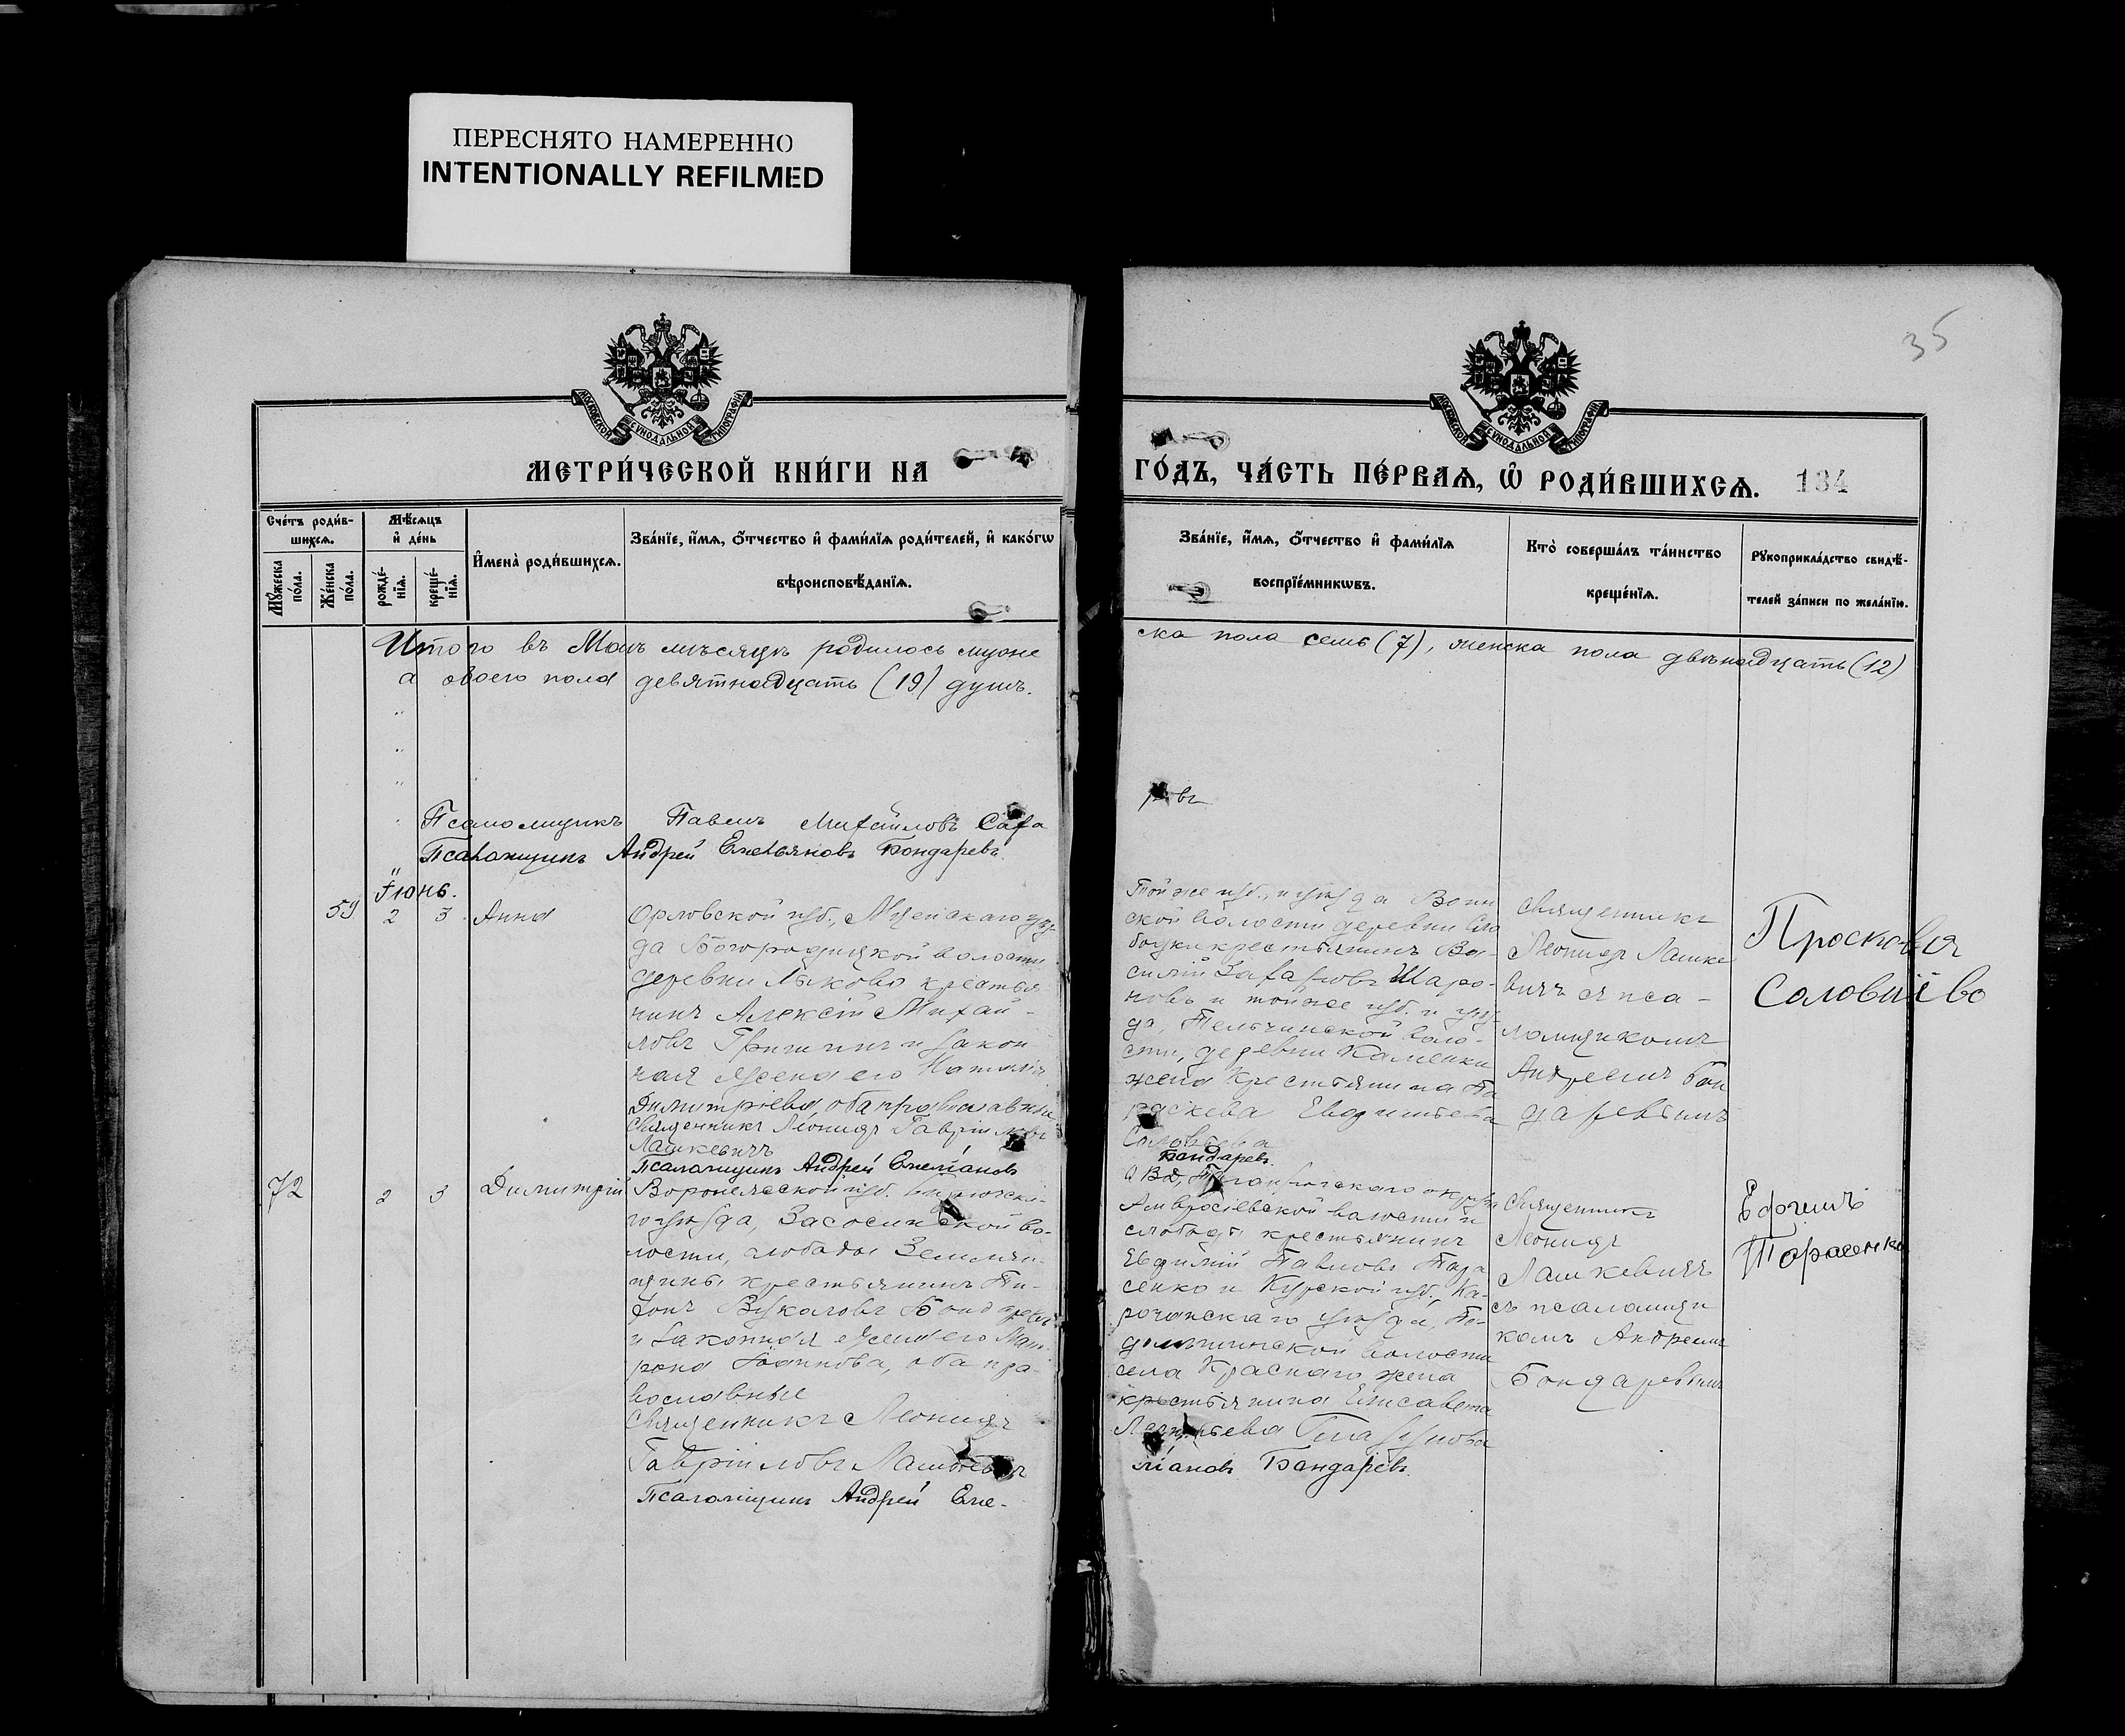 ПЕРЕСНЯТО НАМЕРЕННО
INTENTIONALLY REFILMED
35
МОСКОВСКОЙ СѴНОДАЛЬНОЙ ТИПОГРАФІИ
МОСКОВСКОЙ СѴНОДАЛЬНОЙ ТИПОГРАФІИ
МЕТРИ́ЧЕСКОЙ КНИ́ГИ НА
ГО́ДЪ, ЧА́СТЬ ПЕ́РВАѦ, Ѡ҆ РОДИ́ВШИХСѦ. 134
Сче́тъ роди́в-
шихсѧ.
Мꙋ́жеска по́ла.
Же́нска по́ла.
Мѣ́сѧцъ
и҆ де́нь
рожде́-
нїѧ.
креще́-
нїѧ.
И҆мена̀ роди́вшихсѧ.
Зва́нїе, и҆́мѧ, ѻ҆́тчество и҆ фами́лїѧ роди́телей, и҆ како́гѡ
вѣроисповѣ́данїѧ.
Зва́нїе, и҆́мѧ, ѻ҆́тчество и҆ фами́лїѧ
воспрїе́мникѡвъ.
Кто̀ соверша́лъ та́инство
креще́нїѧ.
Рꙋкоприкла́дство свидѣ́-
телей за́писи по жела́нїю.
Итого въ Маѣ мѣсяцѣ родилось муже
ска пола семь (7), женска пола двѣнадцать (12)
а обоего пола девятнадцать (19) душъ.
Псаломщикъ Павелъ Михайловъ
Псаломщикъ Андрей Емельяновъ Бондаревъ.
Іюнь.
59 2 3 Анна
Орловской губ., Мценскаго уѣз-
да Богородицкой волости
деревни Лыково крестья
нинъ Алексій Михай-
ловъ Гришинъ и закон
ная жена его Наталія
Димитріева, оба православные
Священникъ Леонидъ Гавріиловъ
Лашкевичъ
Псаломщикъ Андрей Емеліановъ
Той же губ., и уѣзда
ской волости деревни Сло
бодки крестьянинъ Ва-
силій Захаровъ Шаро-
новъ и той же губ. и уѣз-
да, Тельчинской воло-
сти, деревни Каменки
жена крестьянина Па
раскева Евдокимова
Соловьева
Бондаревъ.
Священникъ
Леонидъ Лашке
вичъ съ пса-
ломщикомъ
Андреемъ Бон
даревымъ
Просковя
Соловиево
72 2 3 Димитрій
Воронежской губ. Бирюченска-
го уѣзда, Засосенской во-
лости, слободы Землян-
щины крестьянинъ Ти-
хонъ Бондаревъ
и законная жена его Мат-
рона Іоаннова, оба пра-
вославные
Священникъ Леонидъ
Гавріиловъ Лашкевичъ
Псаломщикъ Андрей Еме-
О. В. Д., Таганрогскаго округа
Амвросіевской волости и
слободы крестьянинъ
Евфимій Павловъ Тара
сенко и Курской губ., Ко-
рочанскаго уѣзда,
волости
села Краснаго жена
крестьянина Елисавета
Леонтьева Глазунова
ліановъ Бондаревъ.
Священникъ
Леонидъ
Лашкевичъ
съ псаломщи
комъ Андреемъ
Бондаревымъ
Ефимъ
Тарасенко